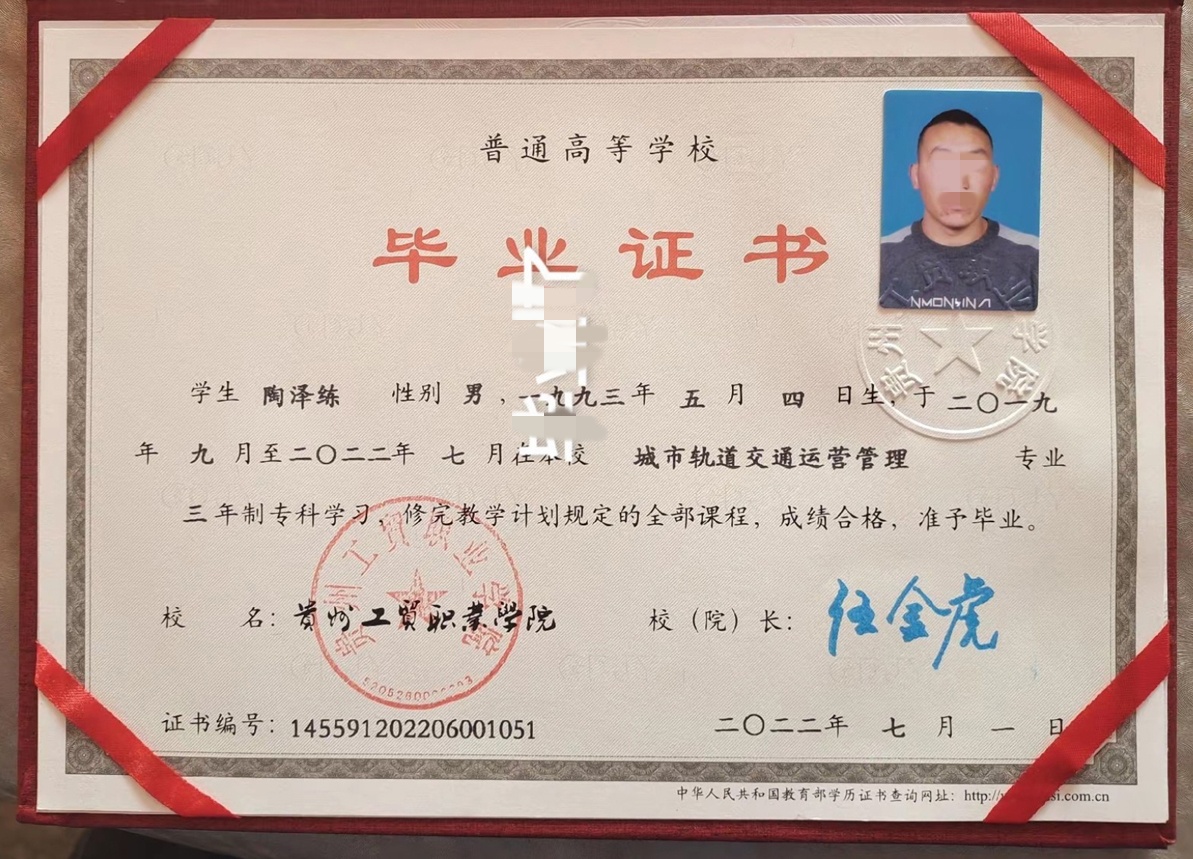 普通高等学校
毕业证书
NMONSINA
学生 陶泽练 性别 男，一九九三年 五 月 四 日生，于 二〇一九
年 九 月至二〇二二年 七 月在本校 城市轨道交通运营管理 专业
三年制专科学习，修完教学计划规定的全部课程，成绩合格，准予毕业。
贵州工贸职业学院
校 名：贵州工贸职业学院 校（院）长：任金虎
证书编号：145591202206001051 二〇二二年 七 月 一 日
中华人民共和国教育部学历证书查询网址：http://
si.com.cn